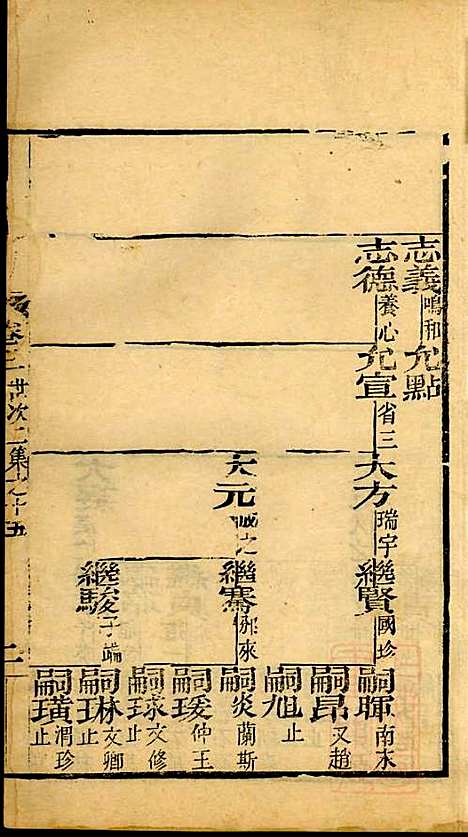 志義 鳴和 允點
志德 養心 允宣 省三 大方 瑞宇 繼賢 國珍 嗣暉 南水
嗣昂 又趙
嗣旭 止
大元 誠之 繼騫 聘來 嗣炎 蘭斯
嗣瑗 仲玉
嗣球 文修 止
繼駿 子端 嗣琳 文卿 止
嗣璜 渭珍 止
卷二 世次二集之十五 二